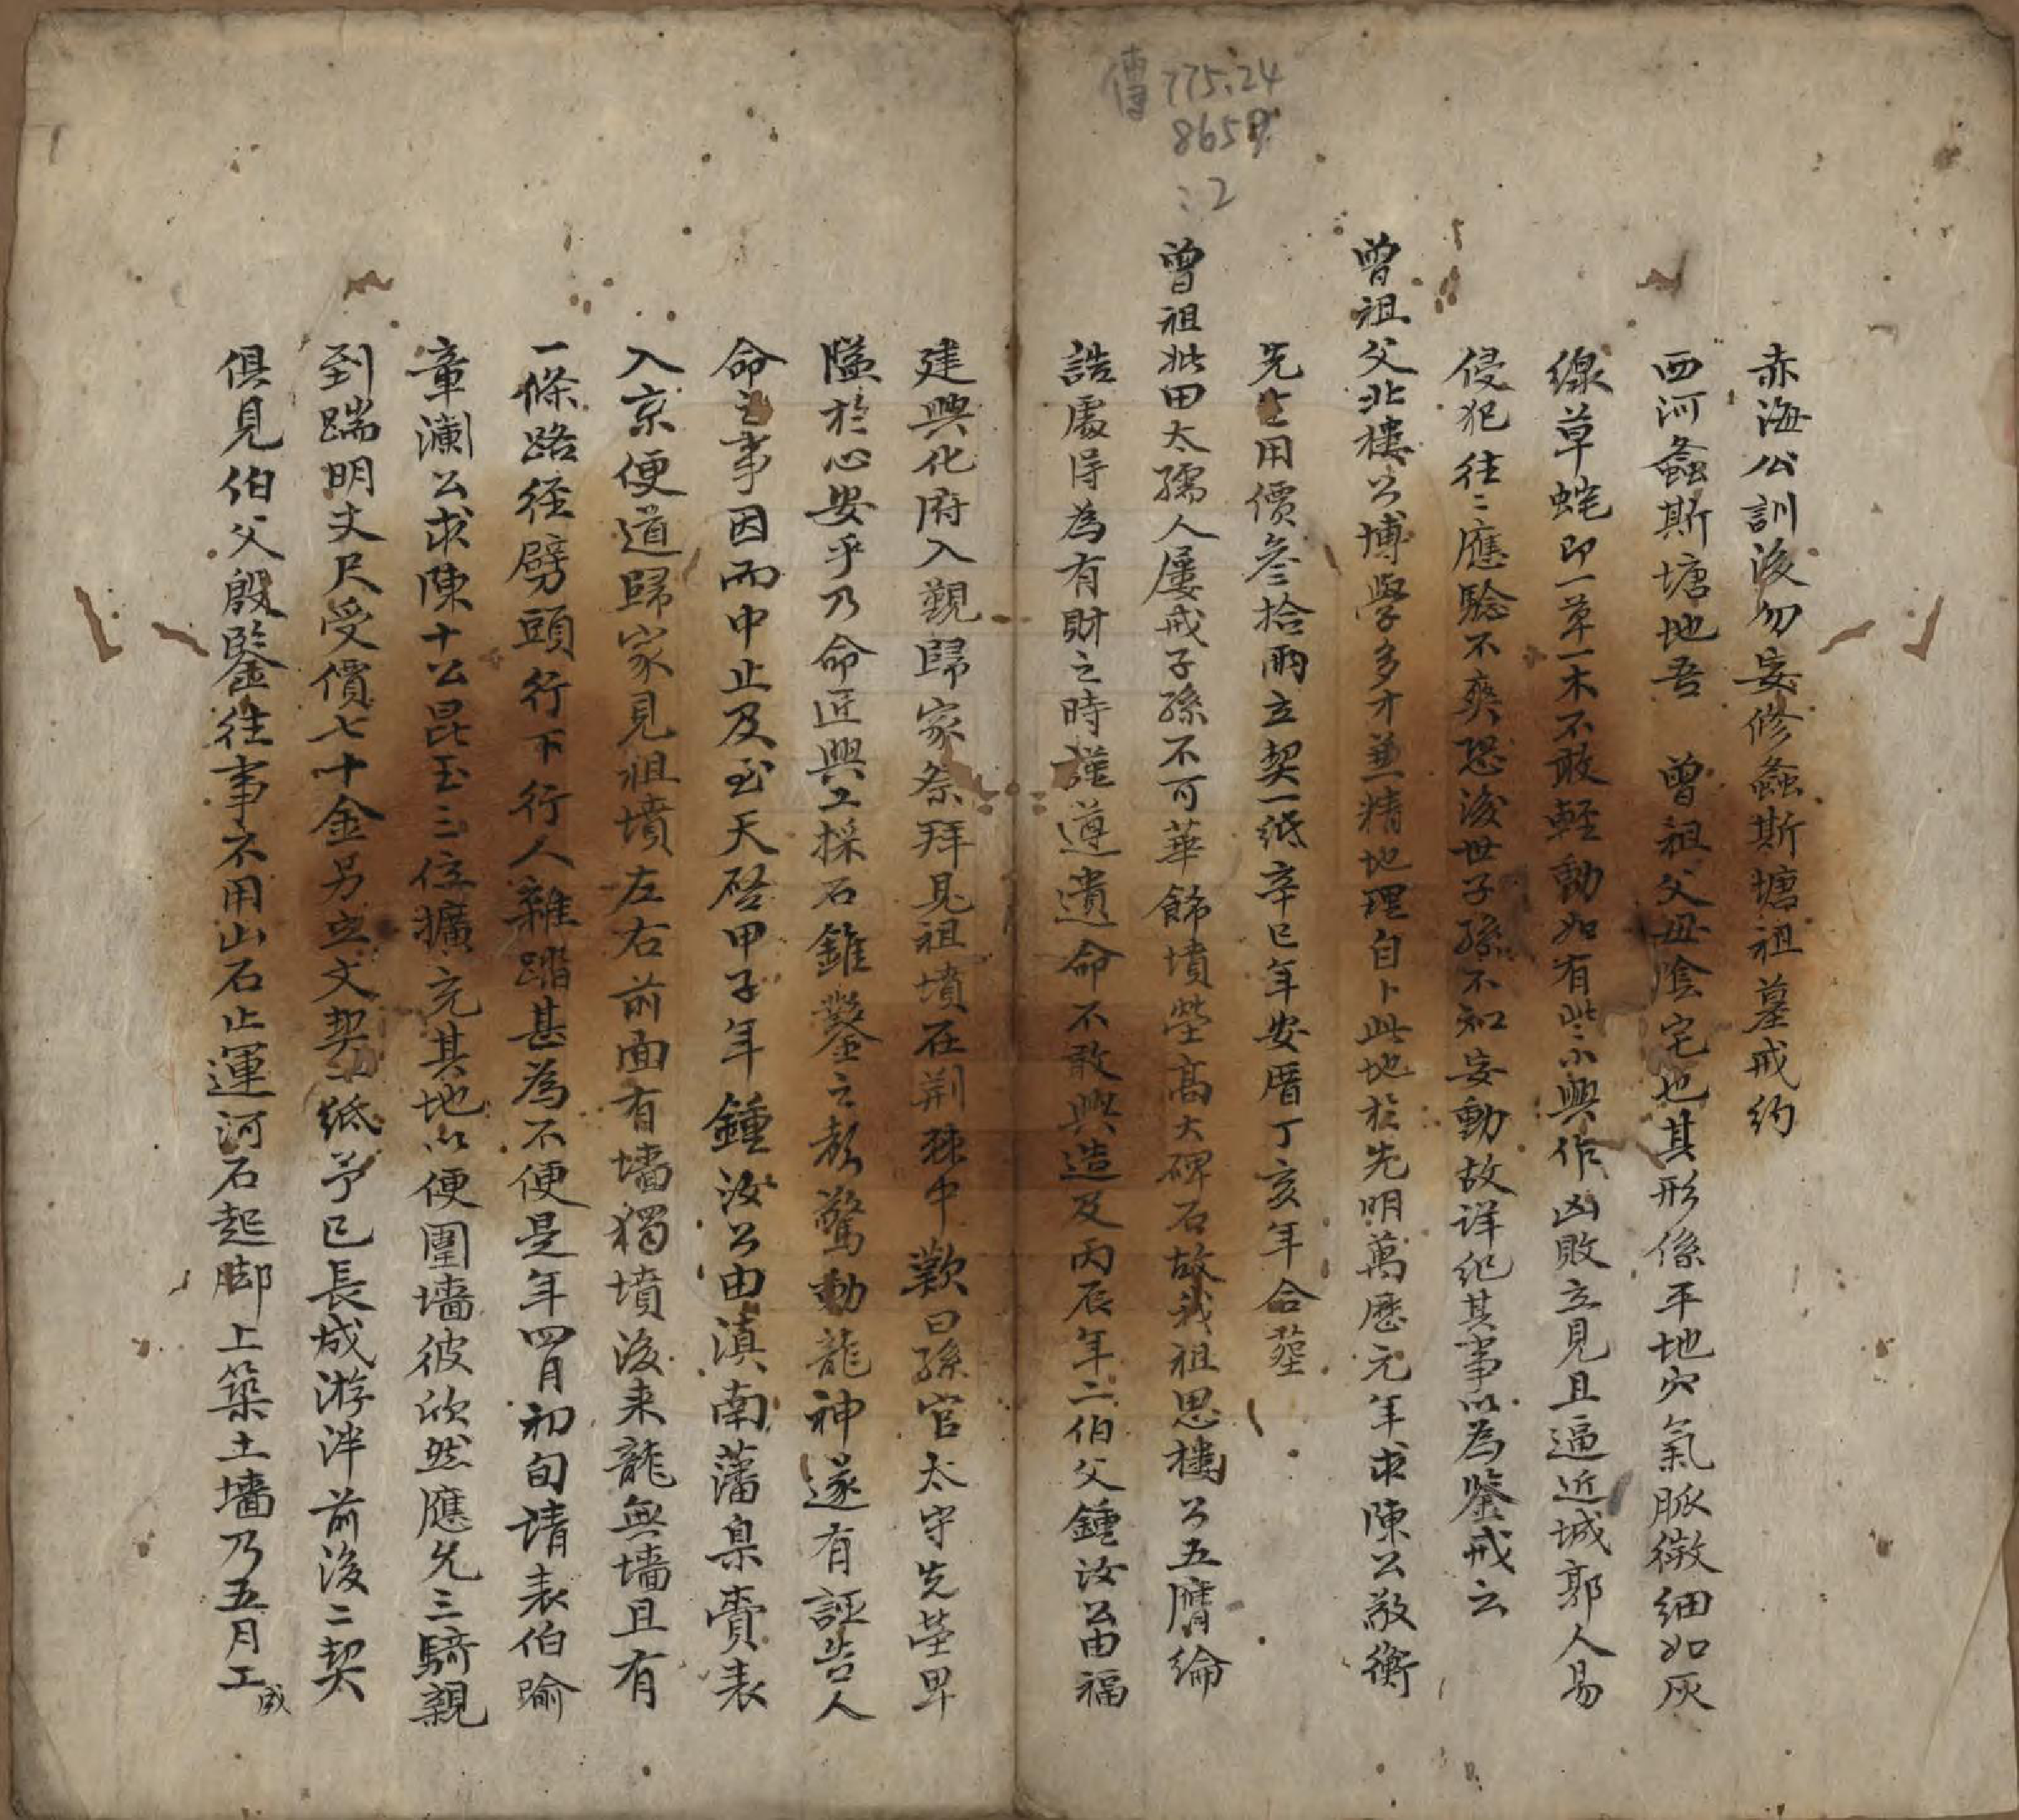 傳 775.24
8659
:2
赤海公訓後勿妄修螽斯塘祖墓戒約
西河螽斯塘地吾 曾祖父母陰宅也其形係平地穴氣脈微細如灰
線草蛇即一草一木不敢輕動如有些小興作凶敗立見且逼近城郭人易
侵犯往々應驗不爽恐後世子孫不知妄動故詳紀其事以為鑒戒云
曾祖父北樓公博學多才兼精地理自卜此地於先明萬曆元年求陳公敬衡
先生用價叁拾兩立契一紙辛巳年安厝丁亥年合塟
曾祖妣田太孺人屢戒子孫不可華飾墳塋高大碑石故我祖思樓公五膺綸
誥處得為有財之時謹遵遺命不敢興造及丙辰年二伯父鍾汝公由福
建興化府入覲歸家祭拜見祖墳在荊棘中歎曰孫官太守先塋卑
隘於心安乎乃命匠興工採石錐鑿之聲驚動龍神遂有誣告人
命之事因而中止及至天啓甲子年鍾汝公由滇南藩臬賫表
入京便道歸家見祖墳左右前面有墻獨墳後来龍無墻且有
一條路徑劈頭行下行人雜踏甚為不便是年四月初旬請表伯瑜
章瀾公求陳十公昆玉三位擴充其地以便圍墻彼欣然應允三騎親
到踹明丈尺受價七十金另立文契一紙予已長成游泮前後二契
俱見伯父殷鑒往事不用山石止運河石起脚上築土墻乃五月工成